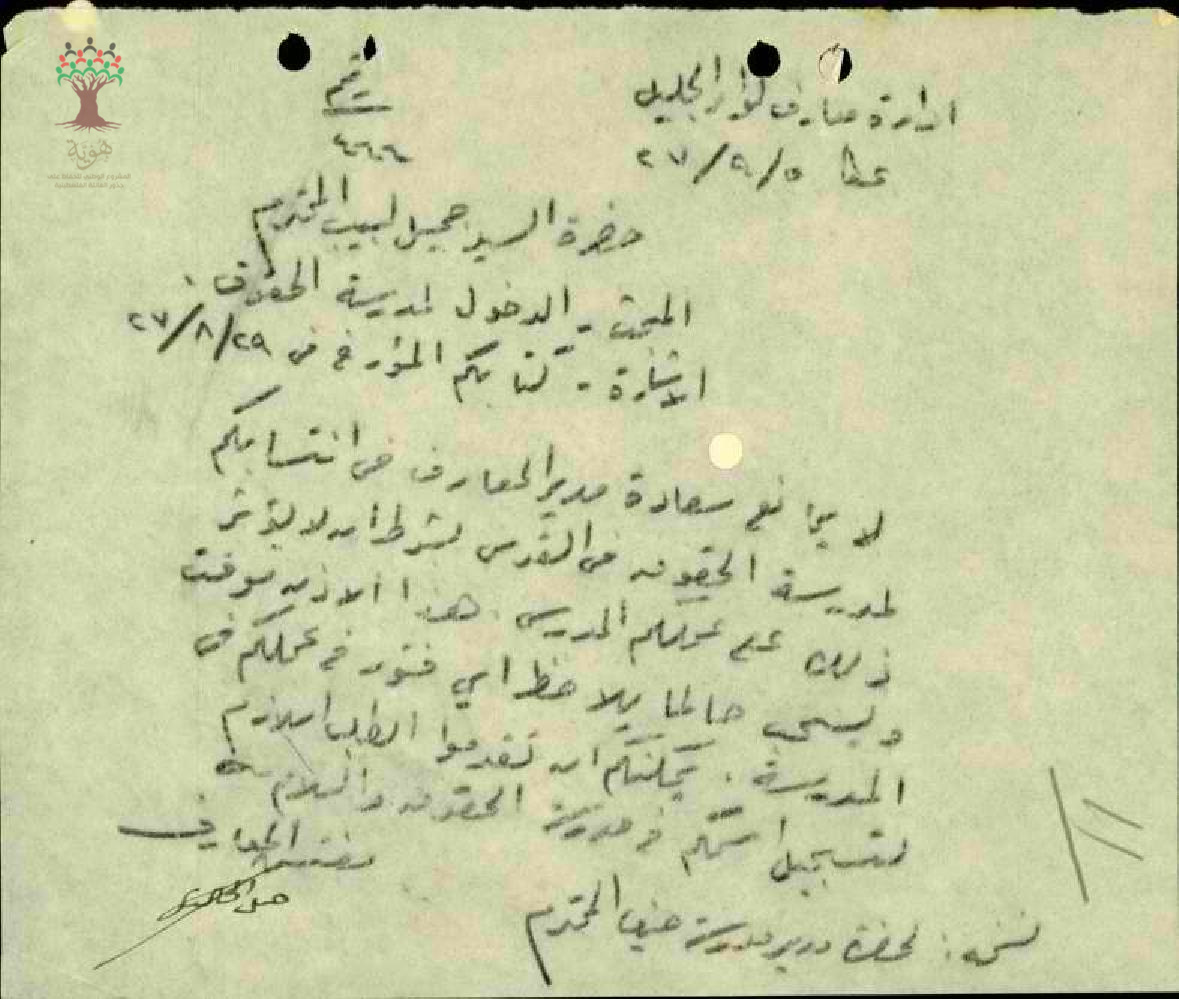 هوية
ادارة معارف لواء الجليل
رقم
عكا ٥/٩/٢٧
حضرة السيد جميل لبيب المحترم
المبحث - الدخول لمدرسة الحقوق .
الاشارة - كتابكم المؤرخ في ٢٩/٨/٢٧
لا يمانع سعادة مدير المعارف في انتسابكم
لمدرسة الحقوق في القدس بشرط ان لا يؤثر
ذلك على عملكم المدرسي . هذا الاذن موقت
ويسحب حالما يلاحظ اي فتور في عملكم في
المدرسة . يمكنكم ان تقدموا الطلب اللازم
لتسجيل اسمكم في مدرسة الحقوق والسلام
مفتش المعارف
نسخة : لحضرة مدير مدرسة حيفا المحترم